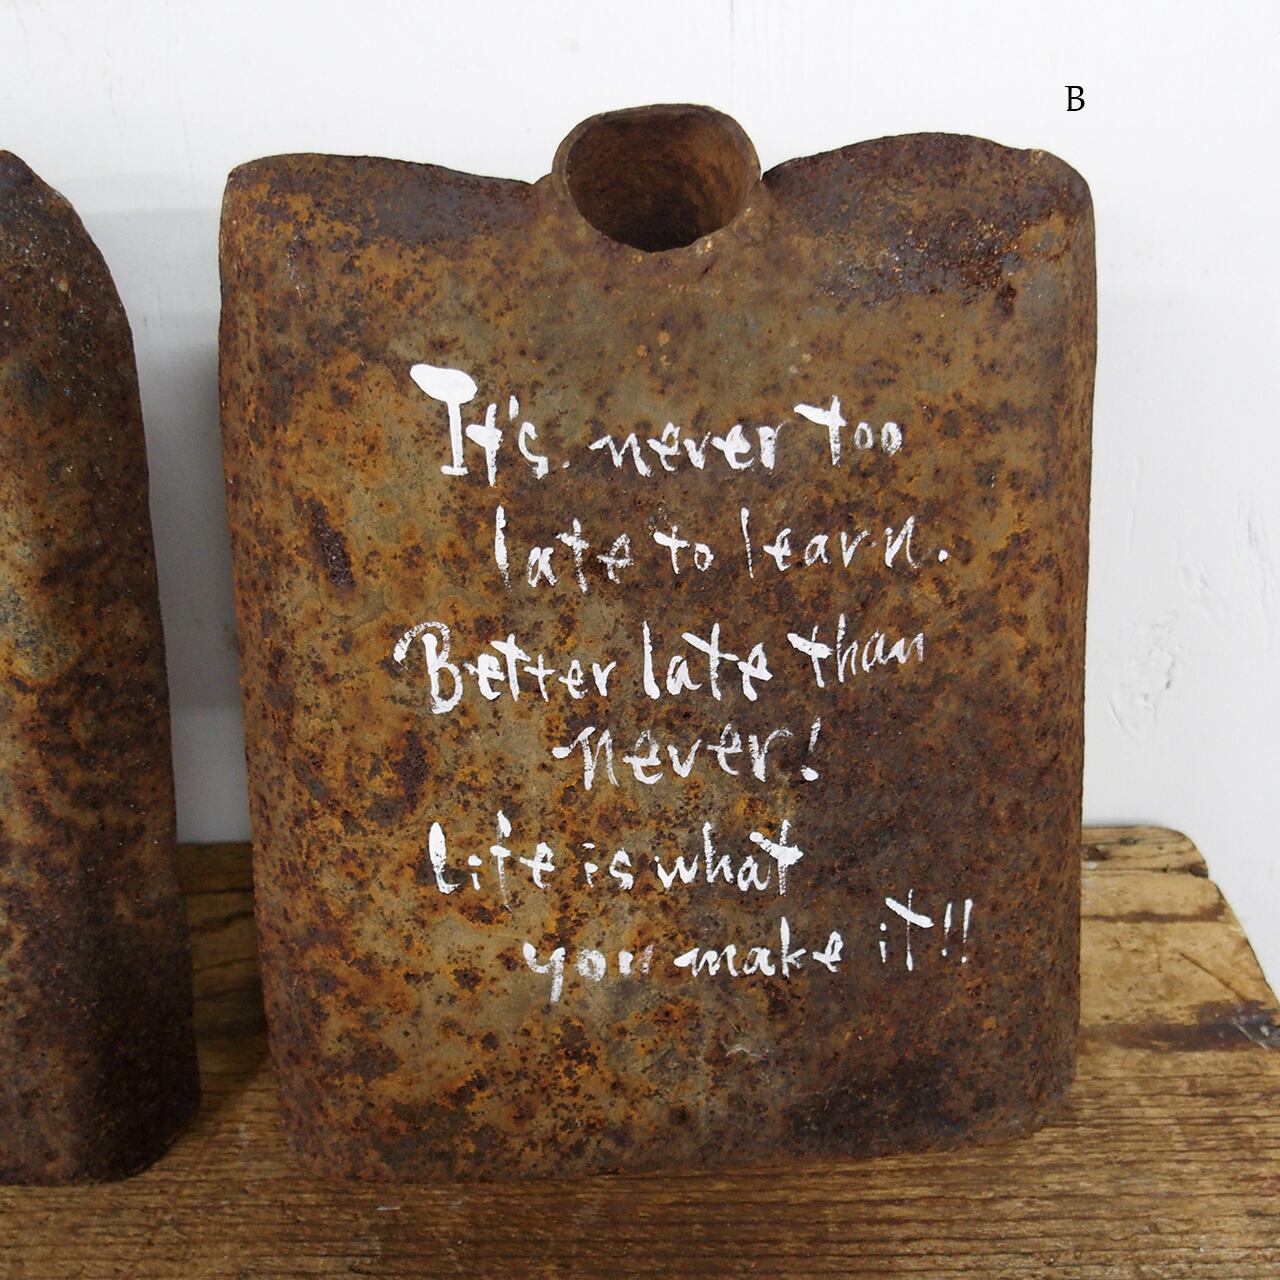 B
It's never too
late to learn.
Better late than
never!
Life is what
you make it!!